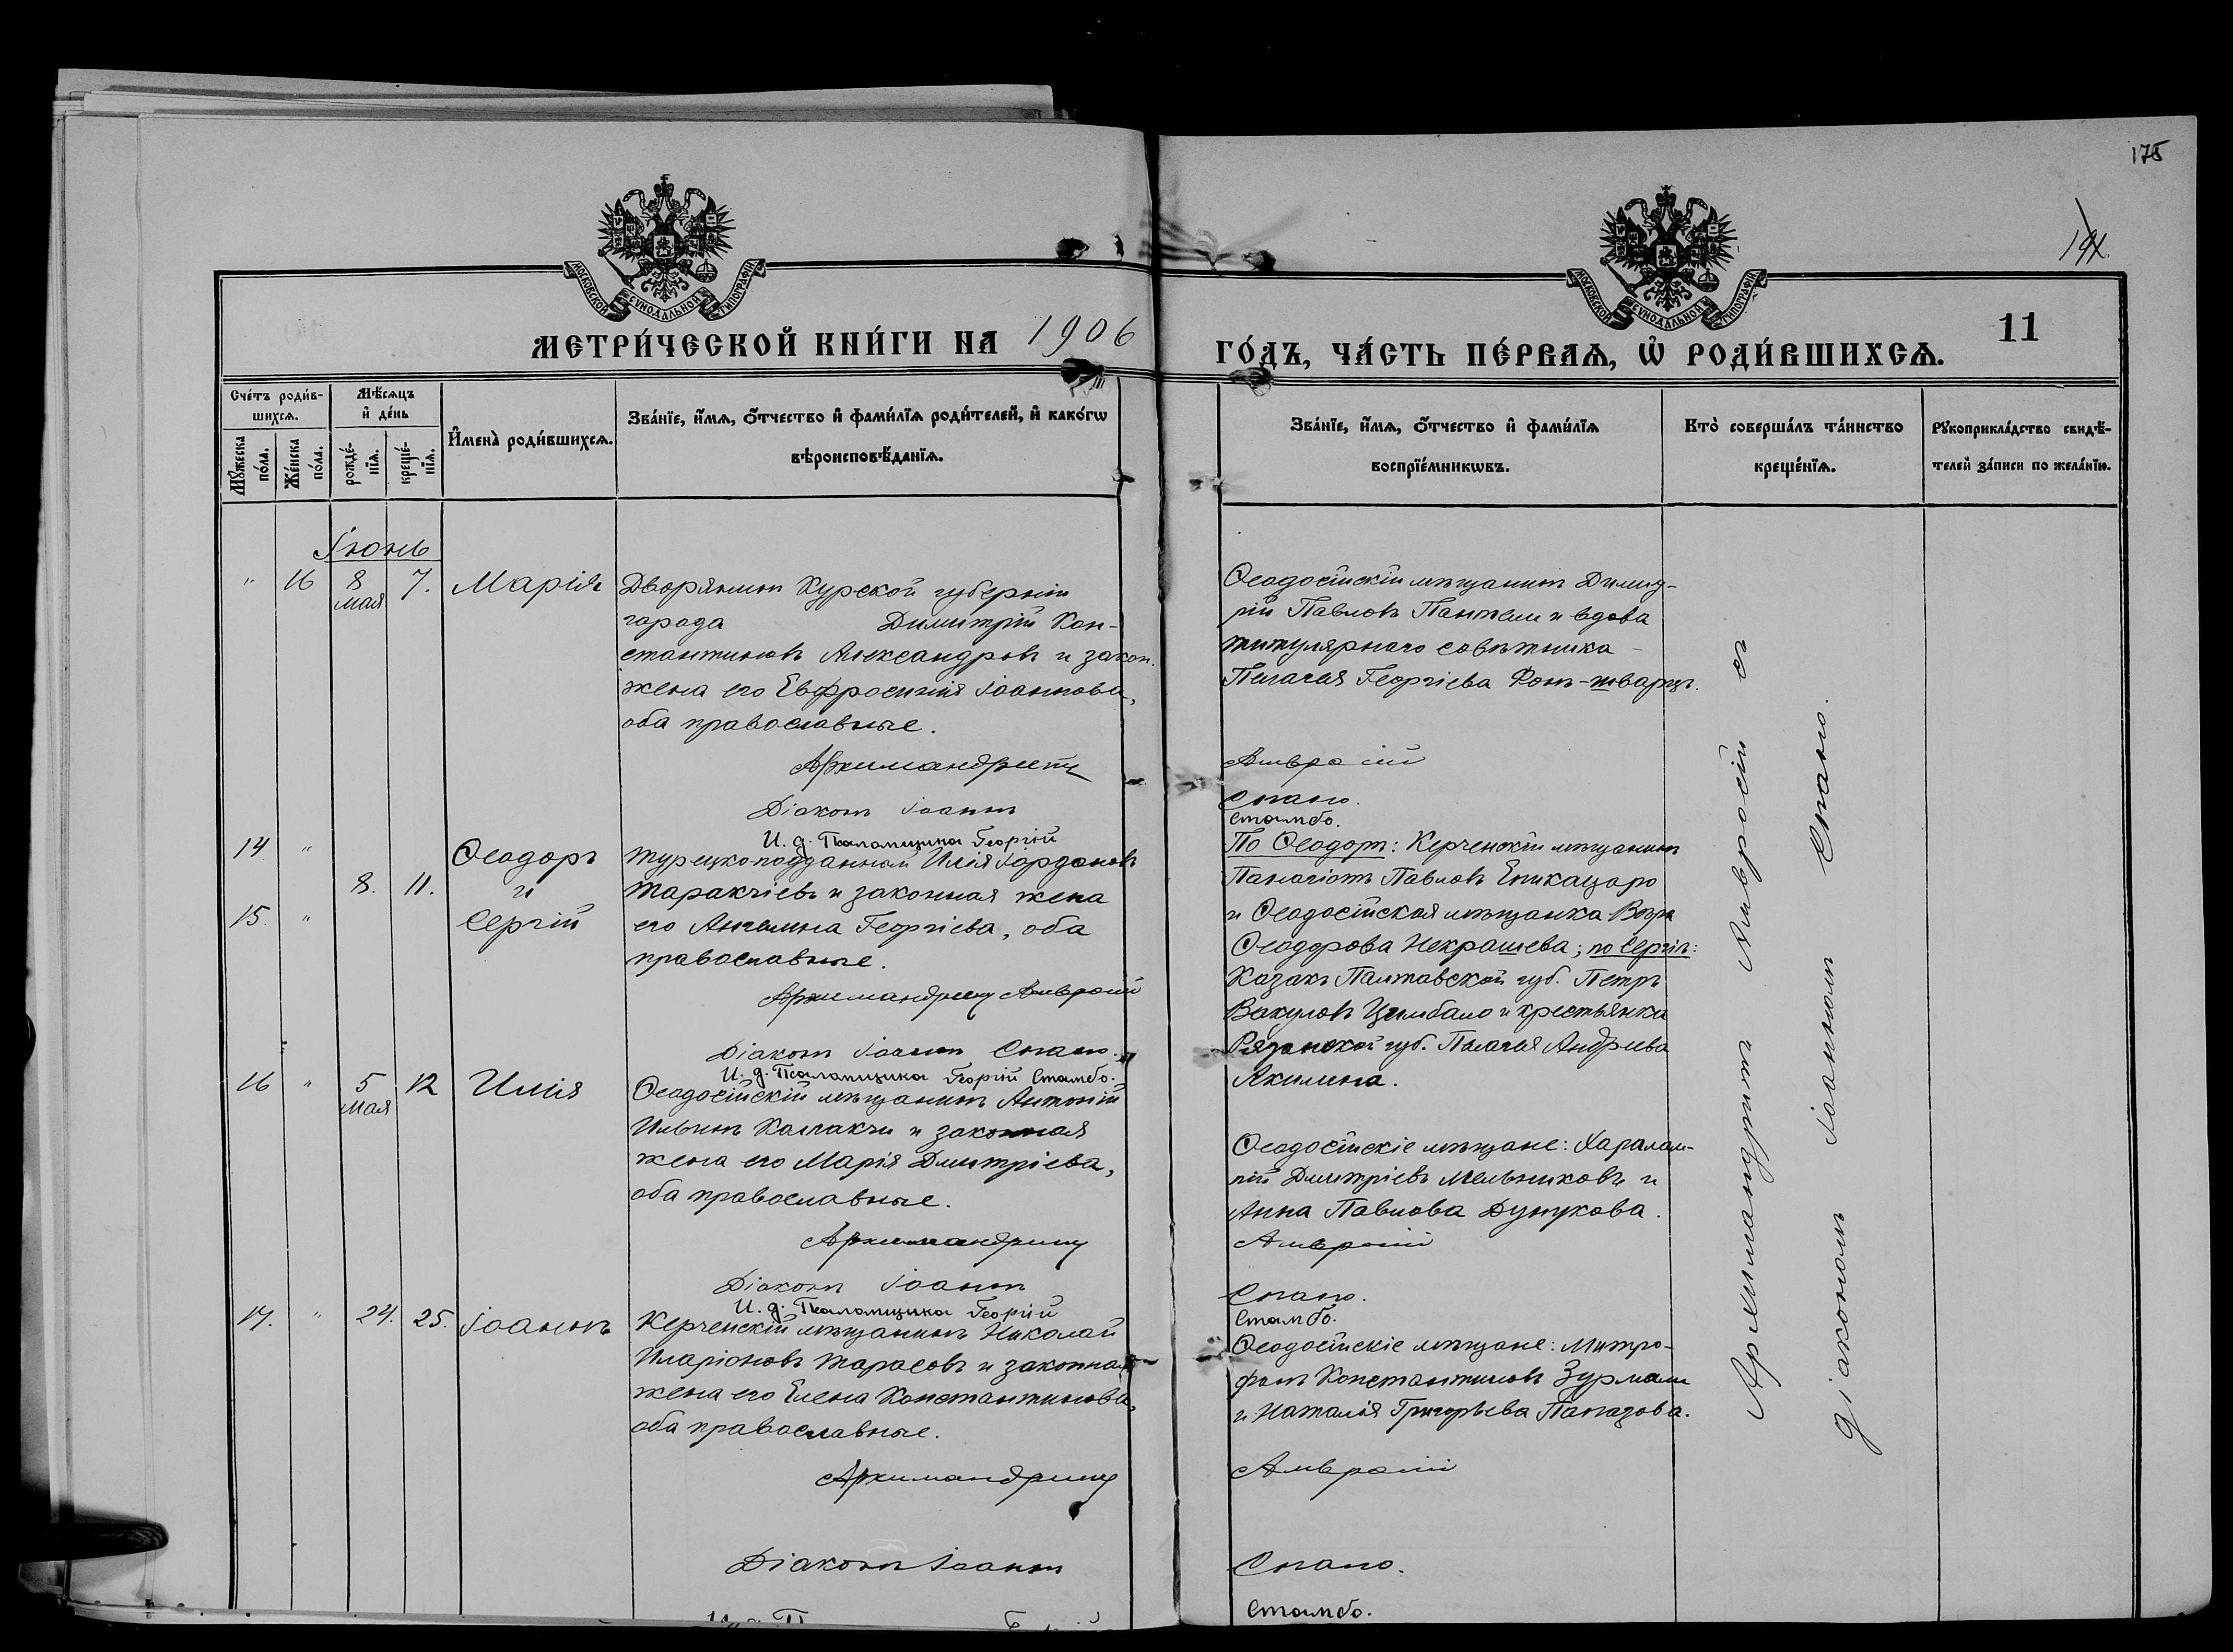 175
191.
МОСКОВСКОЙ СѴНОДАЛЬНОЙ ТИПОГРАФІИ
МОСКОВСКОЙ СѴНОДАЛЬНОЙ ТИПОГРАФІИ
МЕТРИ́ЧЕСКОЙ КНИ́ГИ НА 1906
ГО́ДЪ, ЧА́СТЬ ПЕ́РВАѦ, Ѡ҆ РОДИ́ВШИХСѦ.
11
Сче́тъ роди́в-
шихсѧ.
Мꙋ́жеска
по́ла.
Же́нска
по́ла.
Мѣ́сѧцъ
и҆ де́нь
рожде́-
нїѧ.
креще́-
нїѧ.
И҆мена̀ роди́вшихсѧ.
Зва́нїе, и҆́мѧ, о҆́тчество и҆ фами́лїѧ роди́телей, и҆ како́гѡ
вѣроисповѣ́данїѧ.
Зва́нїе, и҆́мѧ, о҆́тчество и҆ фами́лїѧ
воспрїе́мникѡвъ.
Кто̀ соверша́лъ та́инство
креще́нїѧ.
Рꙋкоприкла́дство свидѣ́-
телей за́писи по жела́нїю.
Іюнь
" 16 8 мая 7. Марія
Дворянинъ Курской губерніи
города Димитрій Кон-
стантиновъ Александровъ и закон.
жена его Евфросинія Іоаннова,
оба православные.
Архимандритъ
Діаконъ Іоаннъ
И. д. Псаломщика Георгій
Ѳеодосійскій мѣщанинъ Димит-
рій Павловъ Пантели и вдова
титулярнаго совѣтника
Пелагея Георгіева Фонъ-шварцъ.
Амвросій
Спано.
Стамбо.
14 "
15. "
8. 11.
Ѳеодоръ
и
Сергій
турецко-подданный Илія Іордановъ
Таракчіевъ и законная жена
его Ангелина Георгіева, оба
православные.
Архимандритъ Амвросій
Діаконъ Іоаннъ Спано.
И. д. Псаломщика Георгій Стамбо.
По Ѳеодорѣ: Керченскій мѣщанинъ
Панагіотъ Павловъ Епикацаро
и Ѳеодосійская мѣщанка Вѣра
Ѳеодорова Некрашева; по Сергіѣ:
Казакъ Полтавской губ. Петръ
Вакуловъ Цымбало и крестьянка
Рязанской губ. Пелагея Андреева
Акимена.
16 " 5 мая 12 Илія
Ѳеодосійскій мѣщанинъ Антоній
Ильинъ Калпакчи и законная
жена его Марія Дмитріева,
оба православные.
Архимандритъ
Діаконъ Іоаннъ
И. д. Псаломщика Георгій
Ѳеодосійскіе мѣщане: Харалам-
пій Дмитріевъ Мельниковъ и
Анна Павлова Дунукова.
Амвросій
Спано.
Стамбо.
17. " 24. 25. Іоаннъ
Керченскій мѣщанинъ Николай
Иларіоновъ Тарасовъ и законная
жена его Елена Константинова,
оба православные.
Архимандритъ
Діаконъ Іоаннъ
Ѳеодосійскіе мѣщане: Митро-
фанъ Константиновъ Зурмали
и Наталія Григорьева Папазова.
Амвросій
Спано.
Стамбо.
Архимандритъ Амвросій съ
діакономъ Іоанномъ Спано.